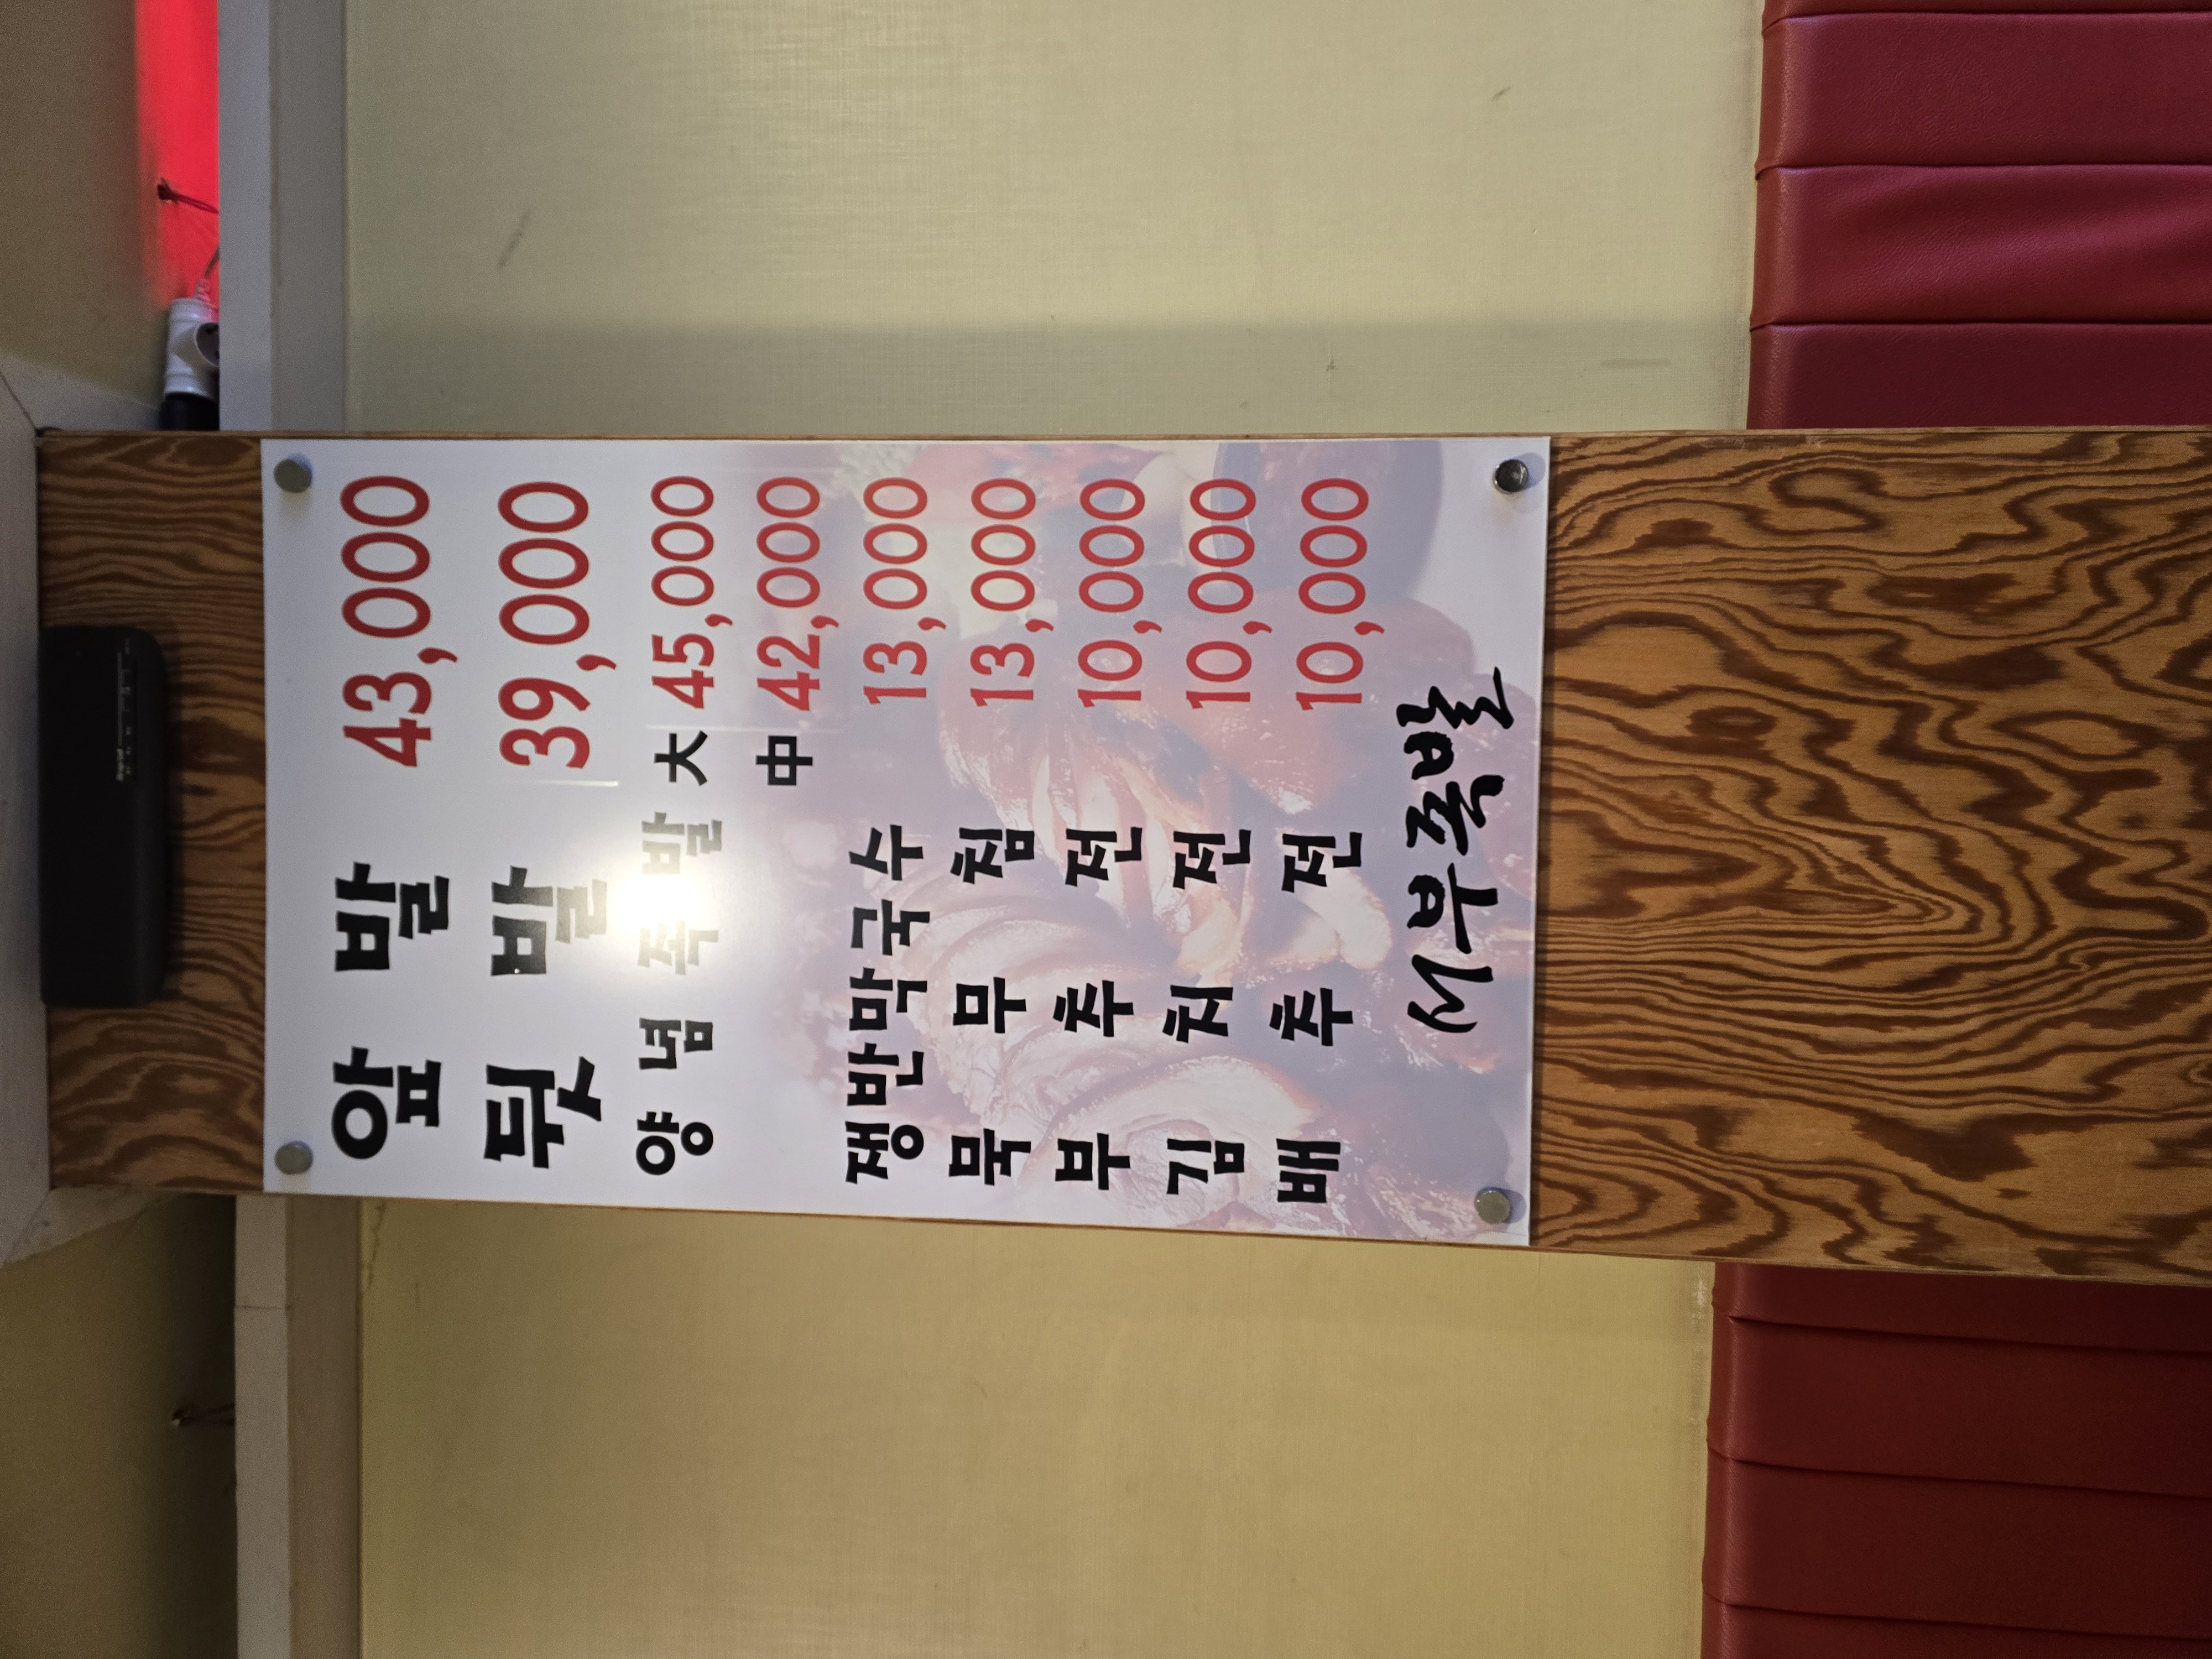 앞 발 43,000
뒷 발 39,000
양 념 족 발 大 45,000
中 42,000
쟁반막국수 13,000
묵 무 침 13,000
부 추 전 10,000
김 치 전 10,000
배 추 전 10,000